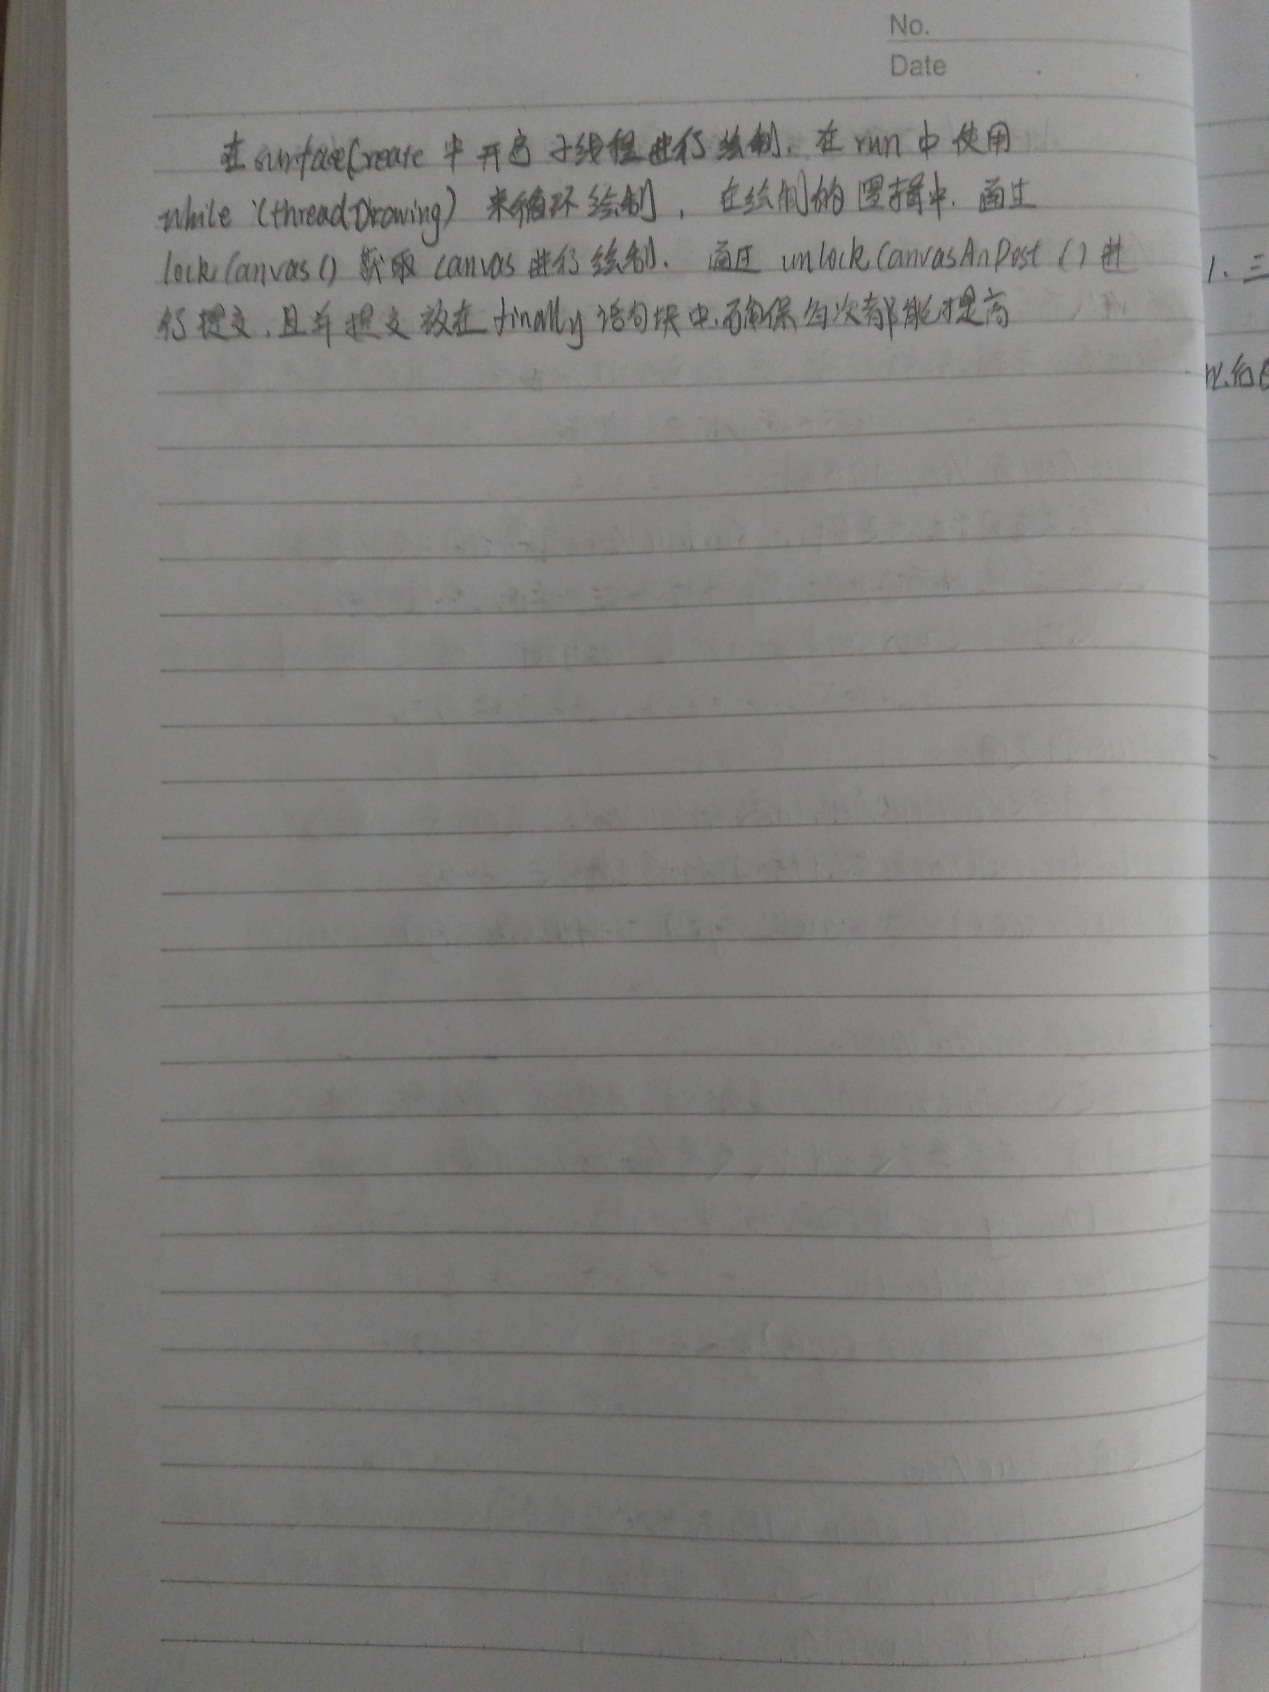 No.
Date
在surfaceCreate中开启子线程进行绘制，在run中使用
while (threadDrawing) 来循环绘制，在绘制的逻辑中，通过
lockCanvas() 获取canvas进行绘制，通过 unlockCanvasAnPost () 进
行提交，且并提交放在finally语句块中，确保每次都能提高
1、三